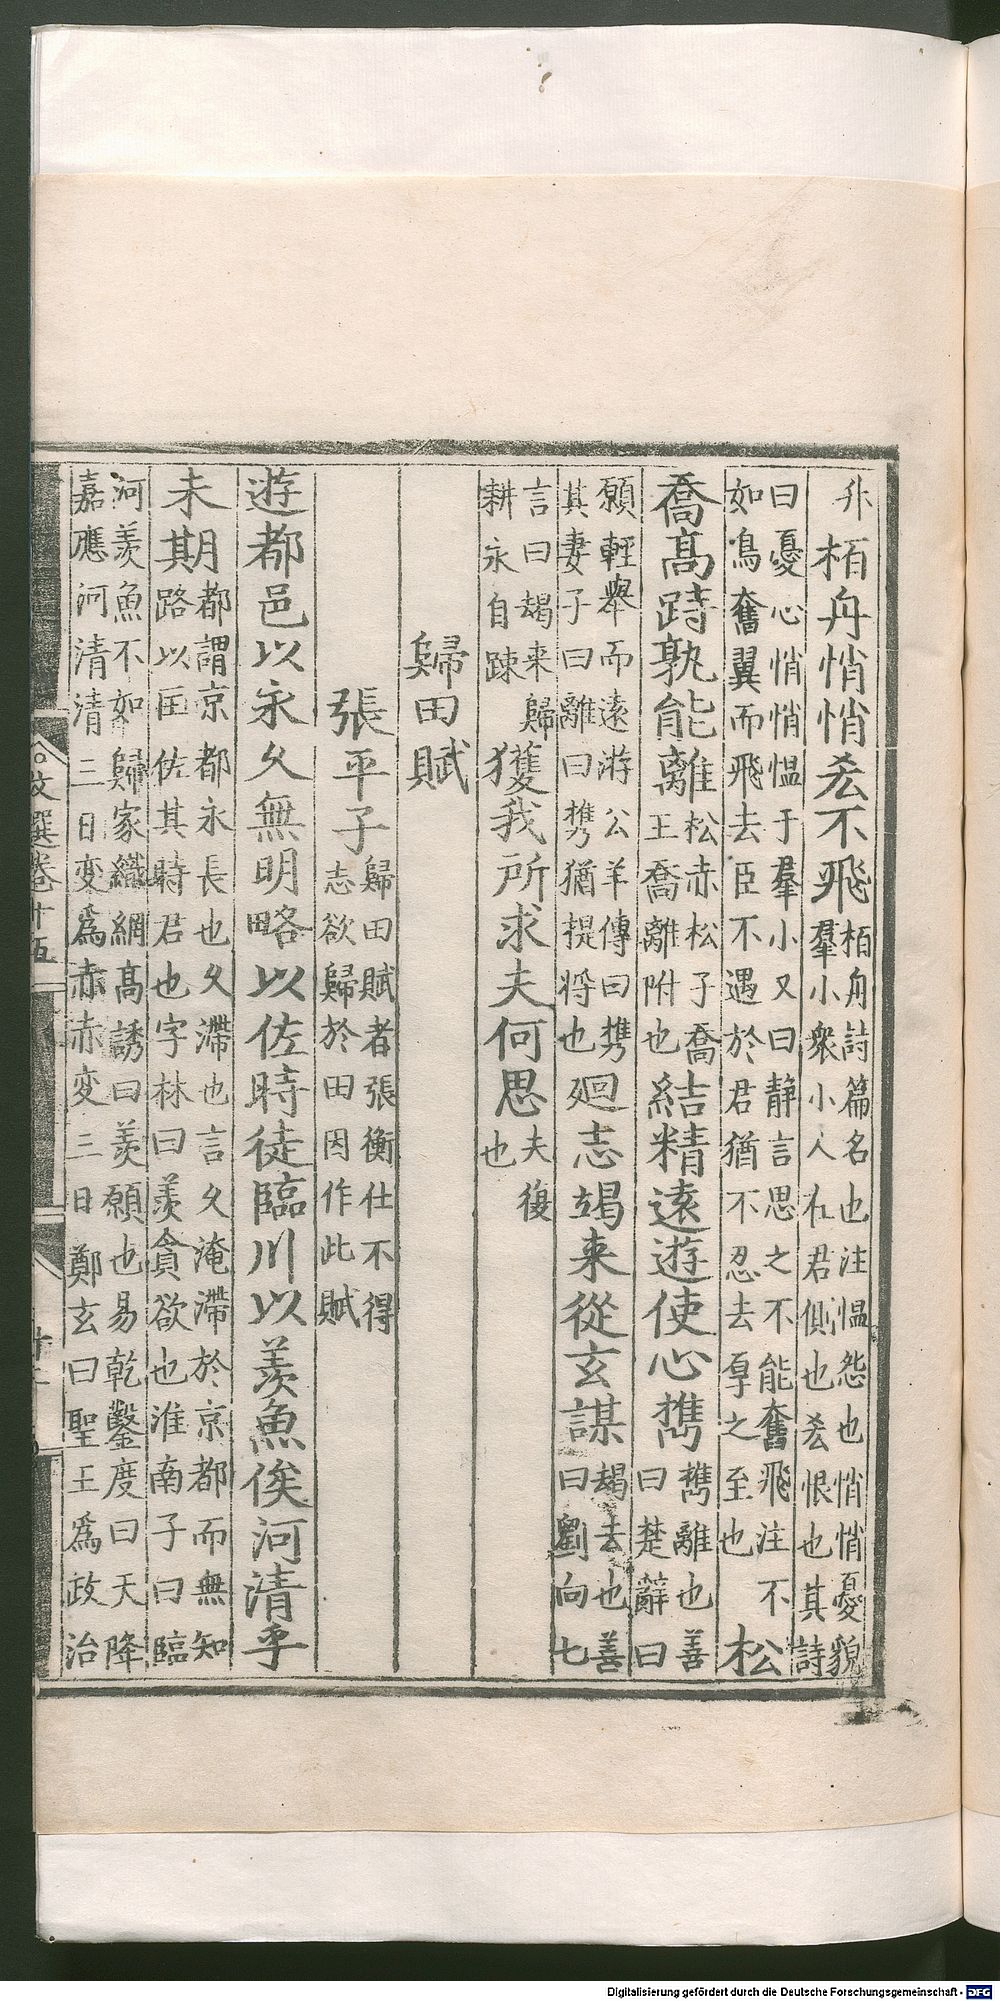 升
栢舟悄悄吝不飛
栢舟詩篇名也注愠怨也悄悄憂貌
羣小衆小人在君側也吝恨也其詩
曰憂心悄悄愠于羣小又曰静言思之不能奮飛注不
如鳥奮翼而飛去臣不遇於君猶不忍去厚之至也
松
喬高跱孰能離
松赤松子喬
王喬離附也
結精遠遊使心攜
攜離也善
曰楚辭曰
願輕舉而遠游公羊傳曰携
其妻子曰離曰携猶提将也
迴志朅来從玄謀
朅去也善
曰劉向七
言曰朅来歸
耕永自踈
獲我所求夫何思
夫復
也
歸田賦
張平子
歸田賦者張衡仕不得
志欲歸於田因作此賦
遊都邑以永久無明略以佐時徒臨川以羡魚俟河清乎
未期
都謂京都永長也久滯也言久淹滯於京都而無知
路以匡佐其時君也字林曰羡貪欲也淮南子曰臨
河羡魚不如歸家織網高誘曰羡願也易乾鑿度曰天降
嘉應河清清三日変爲赤赤変三日鄭玄曰聖王爲政治
文選卷十五
Digitalisierung gefördert durch die Deutsche Forschungsgemeinschaft - DFG